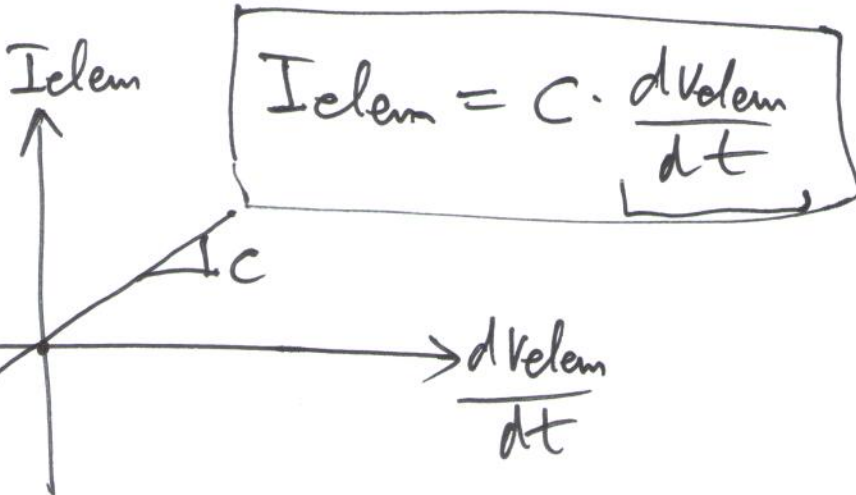 Ielem
Ielem = C · dVelem/dt
C
dVelem/dt